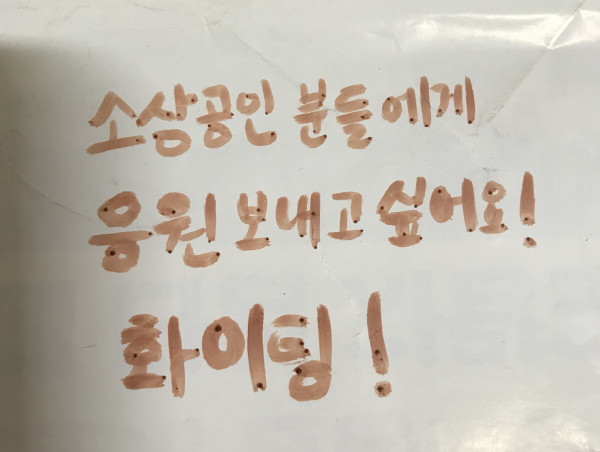 소상공인 분들에게
응원 보내고 싶어요!
화이팅!